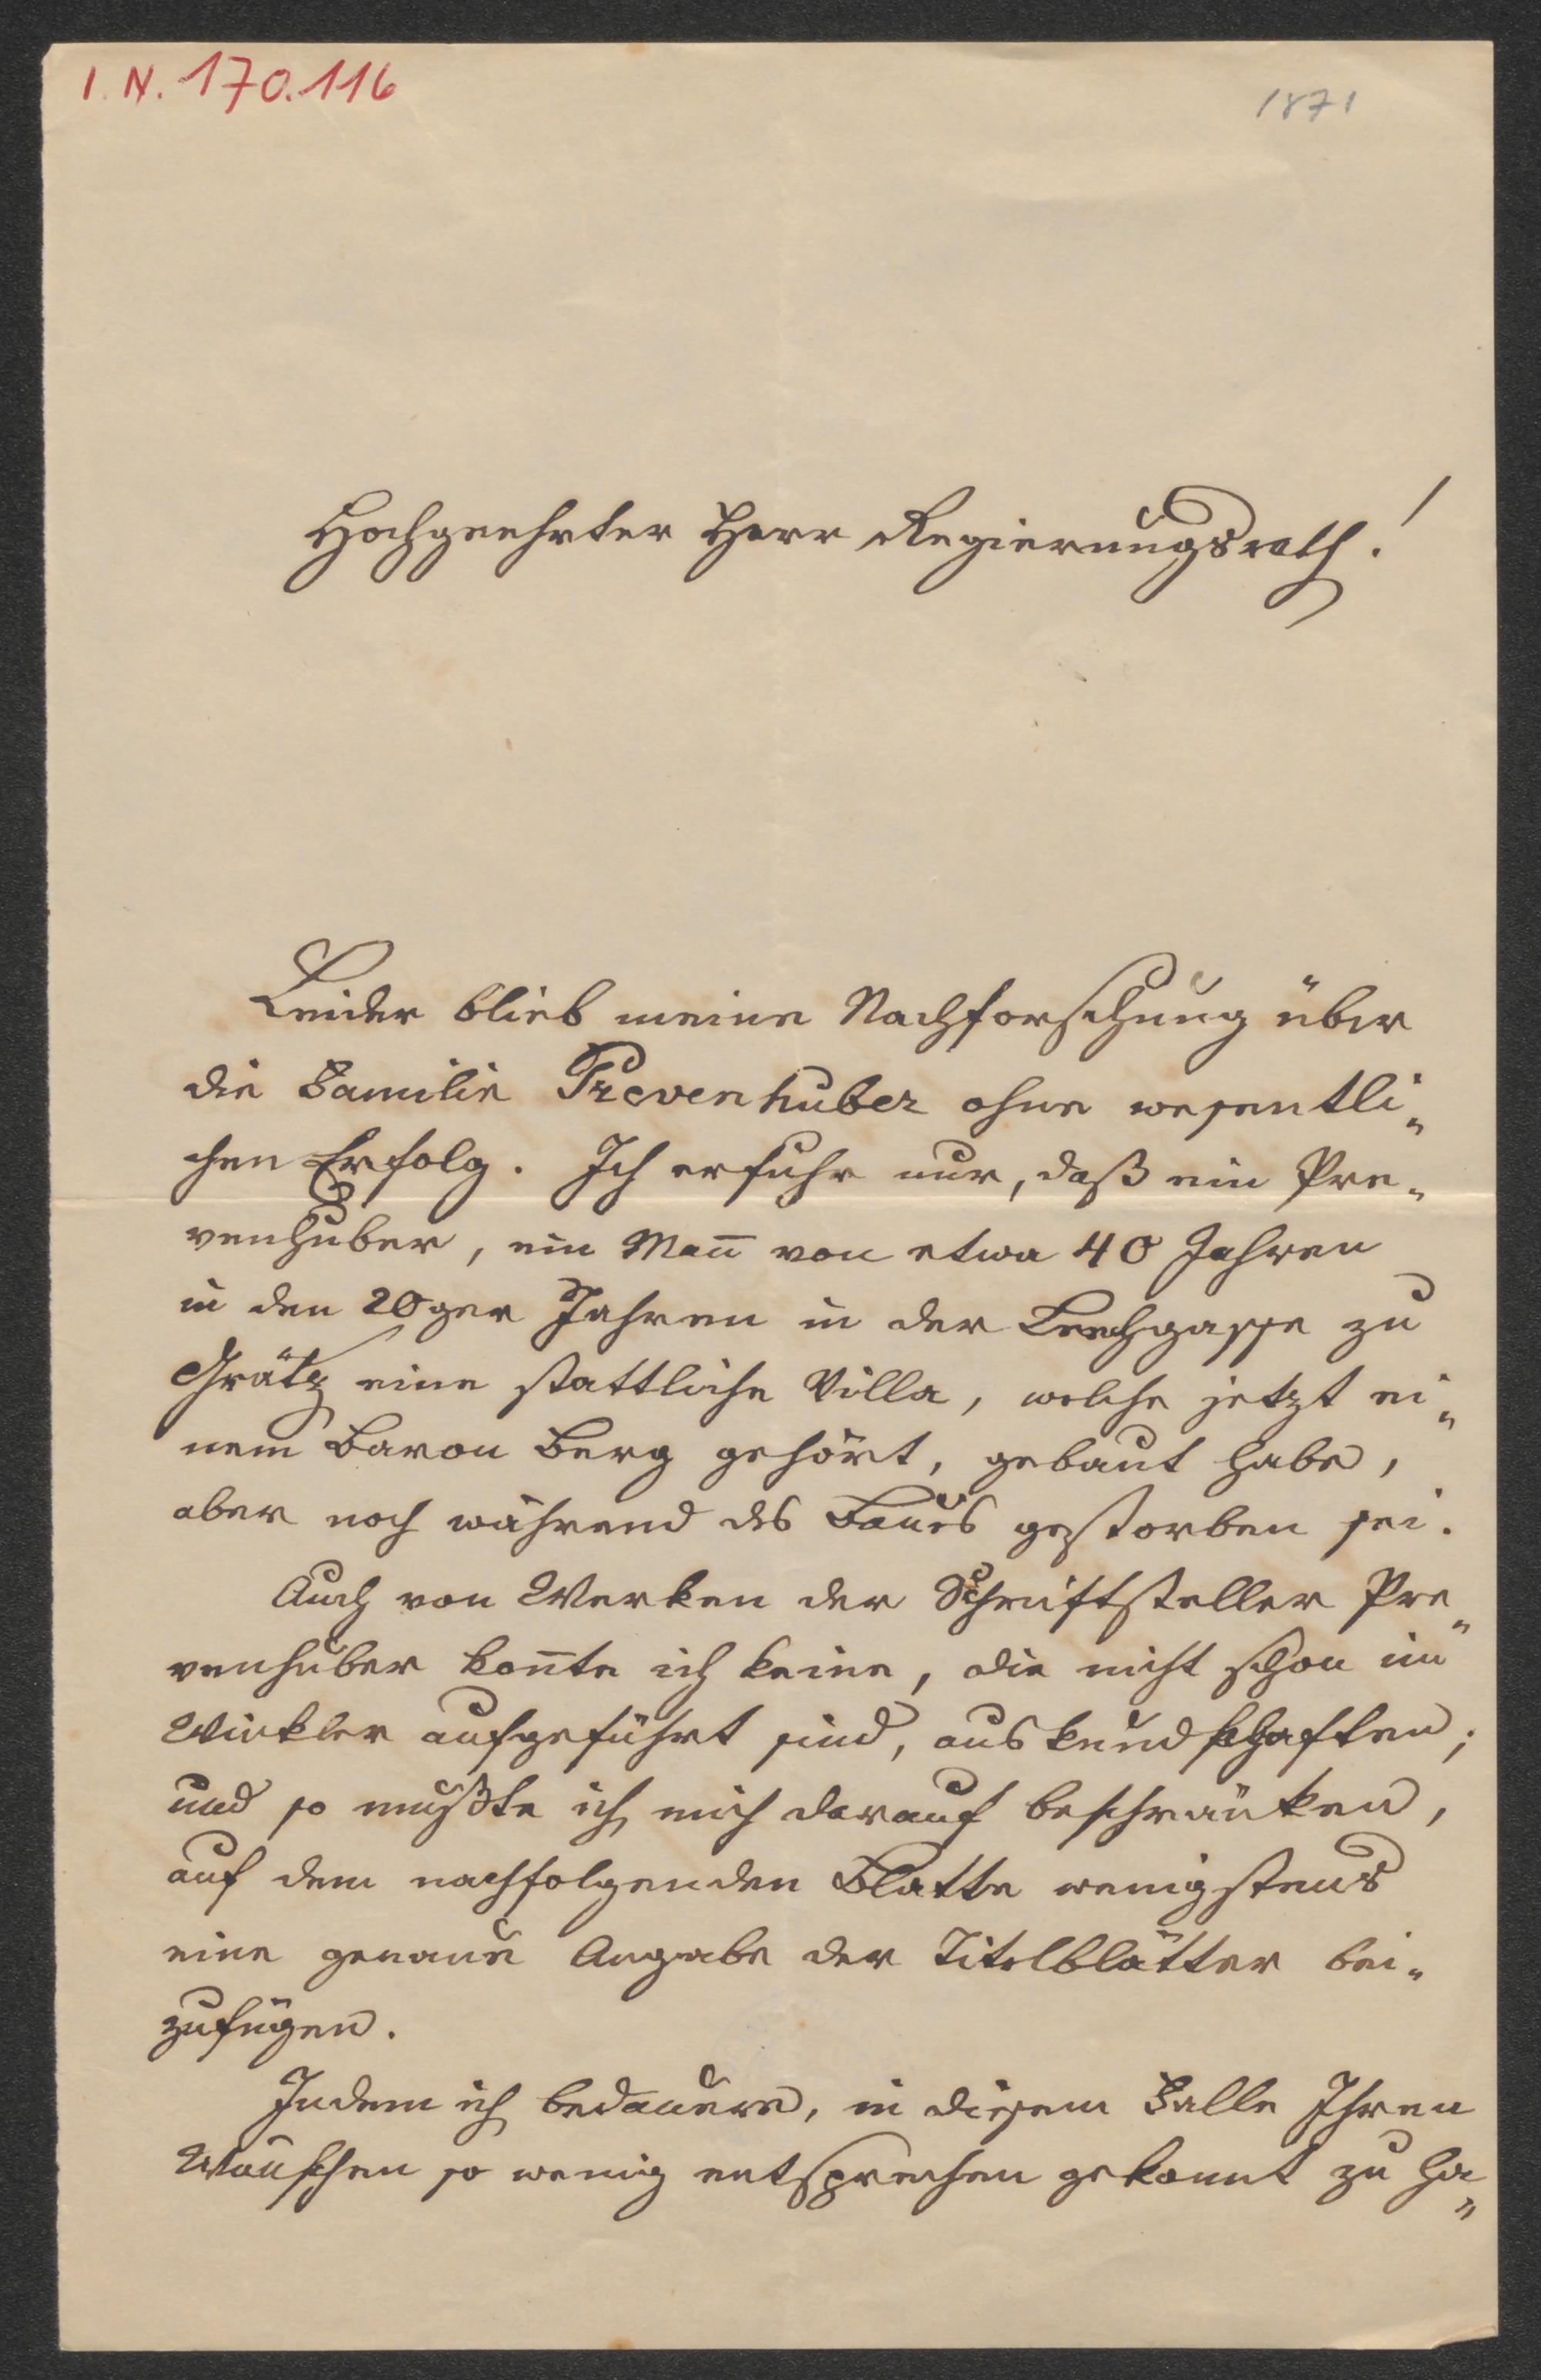 I. N. 170.116
1871
Hochgeehrter Herr Regierungsrath!
Leider blieb meine Nachforschung über
die Familie Prevenhuber ohne wesentli„
chen Erfolg. Ich erfuhr nur, daß ein Pre„
venhuber, ein Man̄ von etwa 40 Jahren
in den 20ger Jahren in der Leechgasse zu
Grätz eine stattliche Villa, welche jetzt ei„
nem Baron Berg gehört, gebaut habe,
aber noch während des Baues gestorben sei.
Auch von Werken der Schriftsteller Pre„
venhuber kon̄te ich keine, die nicht schon im
Winkler aufgeführt sind, auskundschaften;
und so mußte ich mich darauf beschränken,
auf dem nachfolgenden Blatte wenigstens
eine genaue Angabe der Titelblätter bei„
zufügen.
Indem ich bedauere, in diesem Falle Ihren
Wünschen so wenig entsprechen gekonnt zu ha„